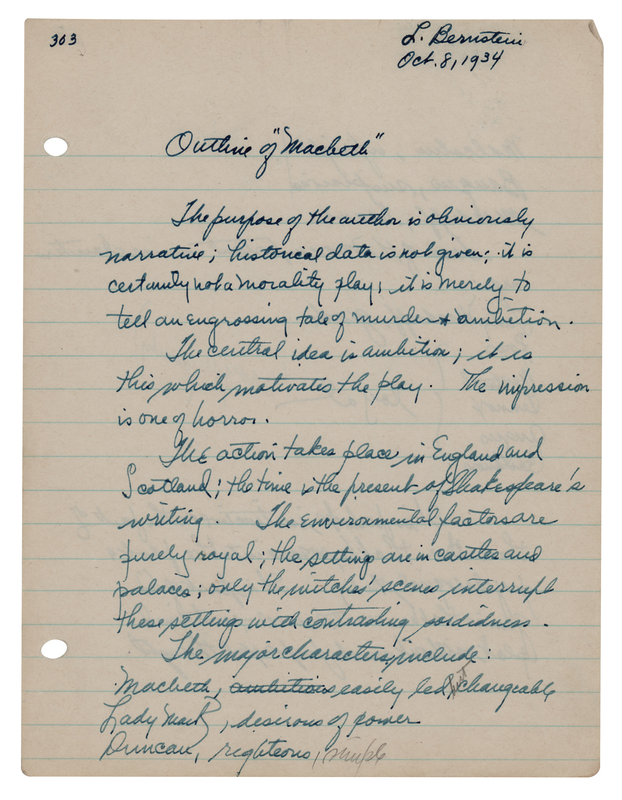 303
L. Bernstein
Oct. 8, 1934
Outline of "Macbeth"
The purpose of the author is obviously
narrative; historical data is not given; it is
certainly not a morality play; it is merely to
tell an engrossing tale of murder & ambition.
The central idea is ambition; it is
this which motivates the play. The impression
is one of horror.
The action takes place in England and
Scotland; the time is the present of Shakespeare's
writing. The environmental factors are
purely royal; the setting are in castles and
palaces; only the witches' scenes interrupt
these settings with contrasting sordidness.
The major characters include:
Macbeth, ambitious easily led, changeable
Lady Macb, desirous of power
Duncan, righteous, simple